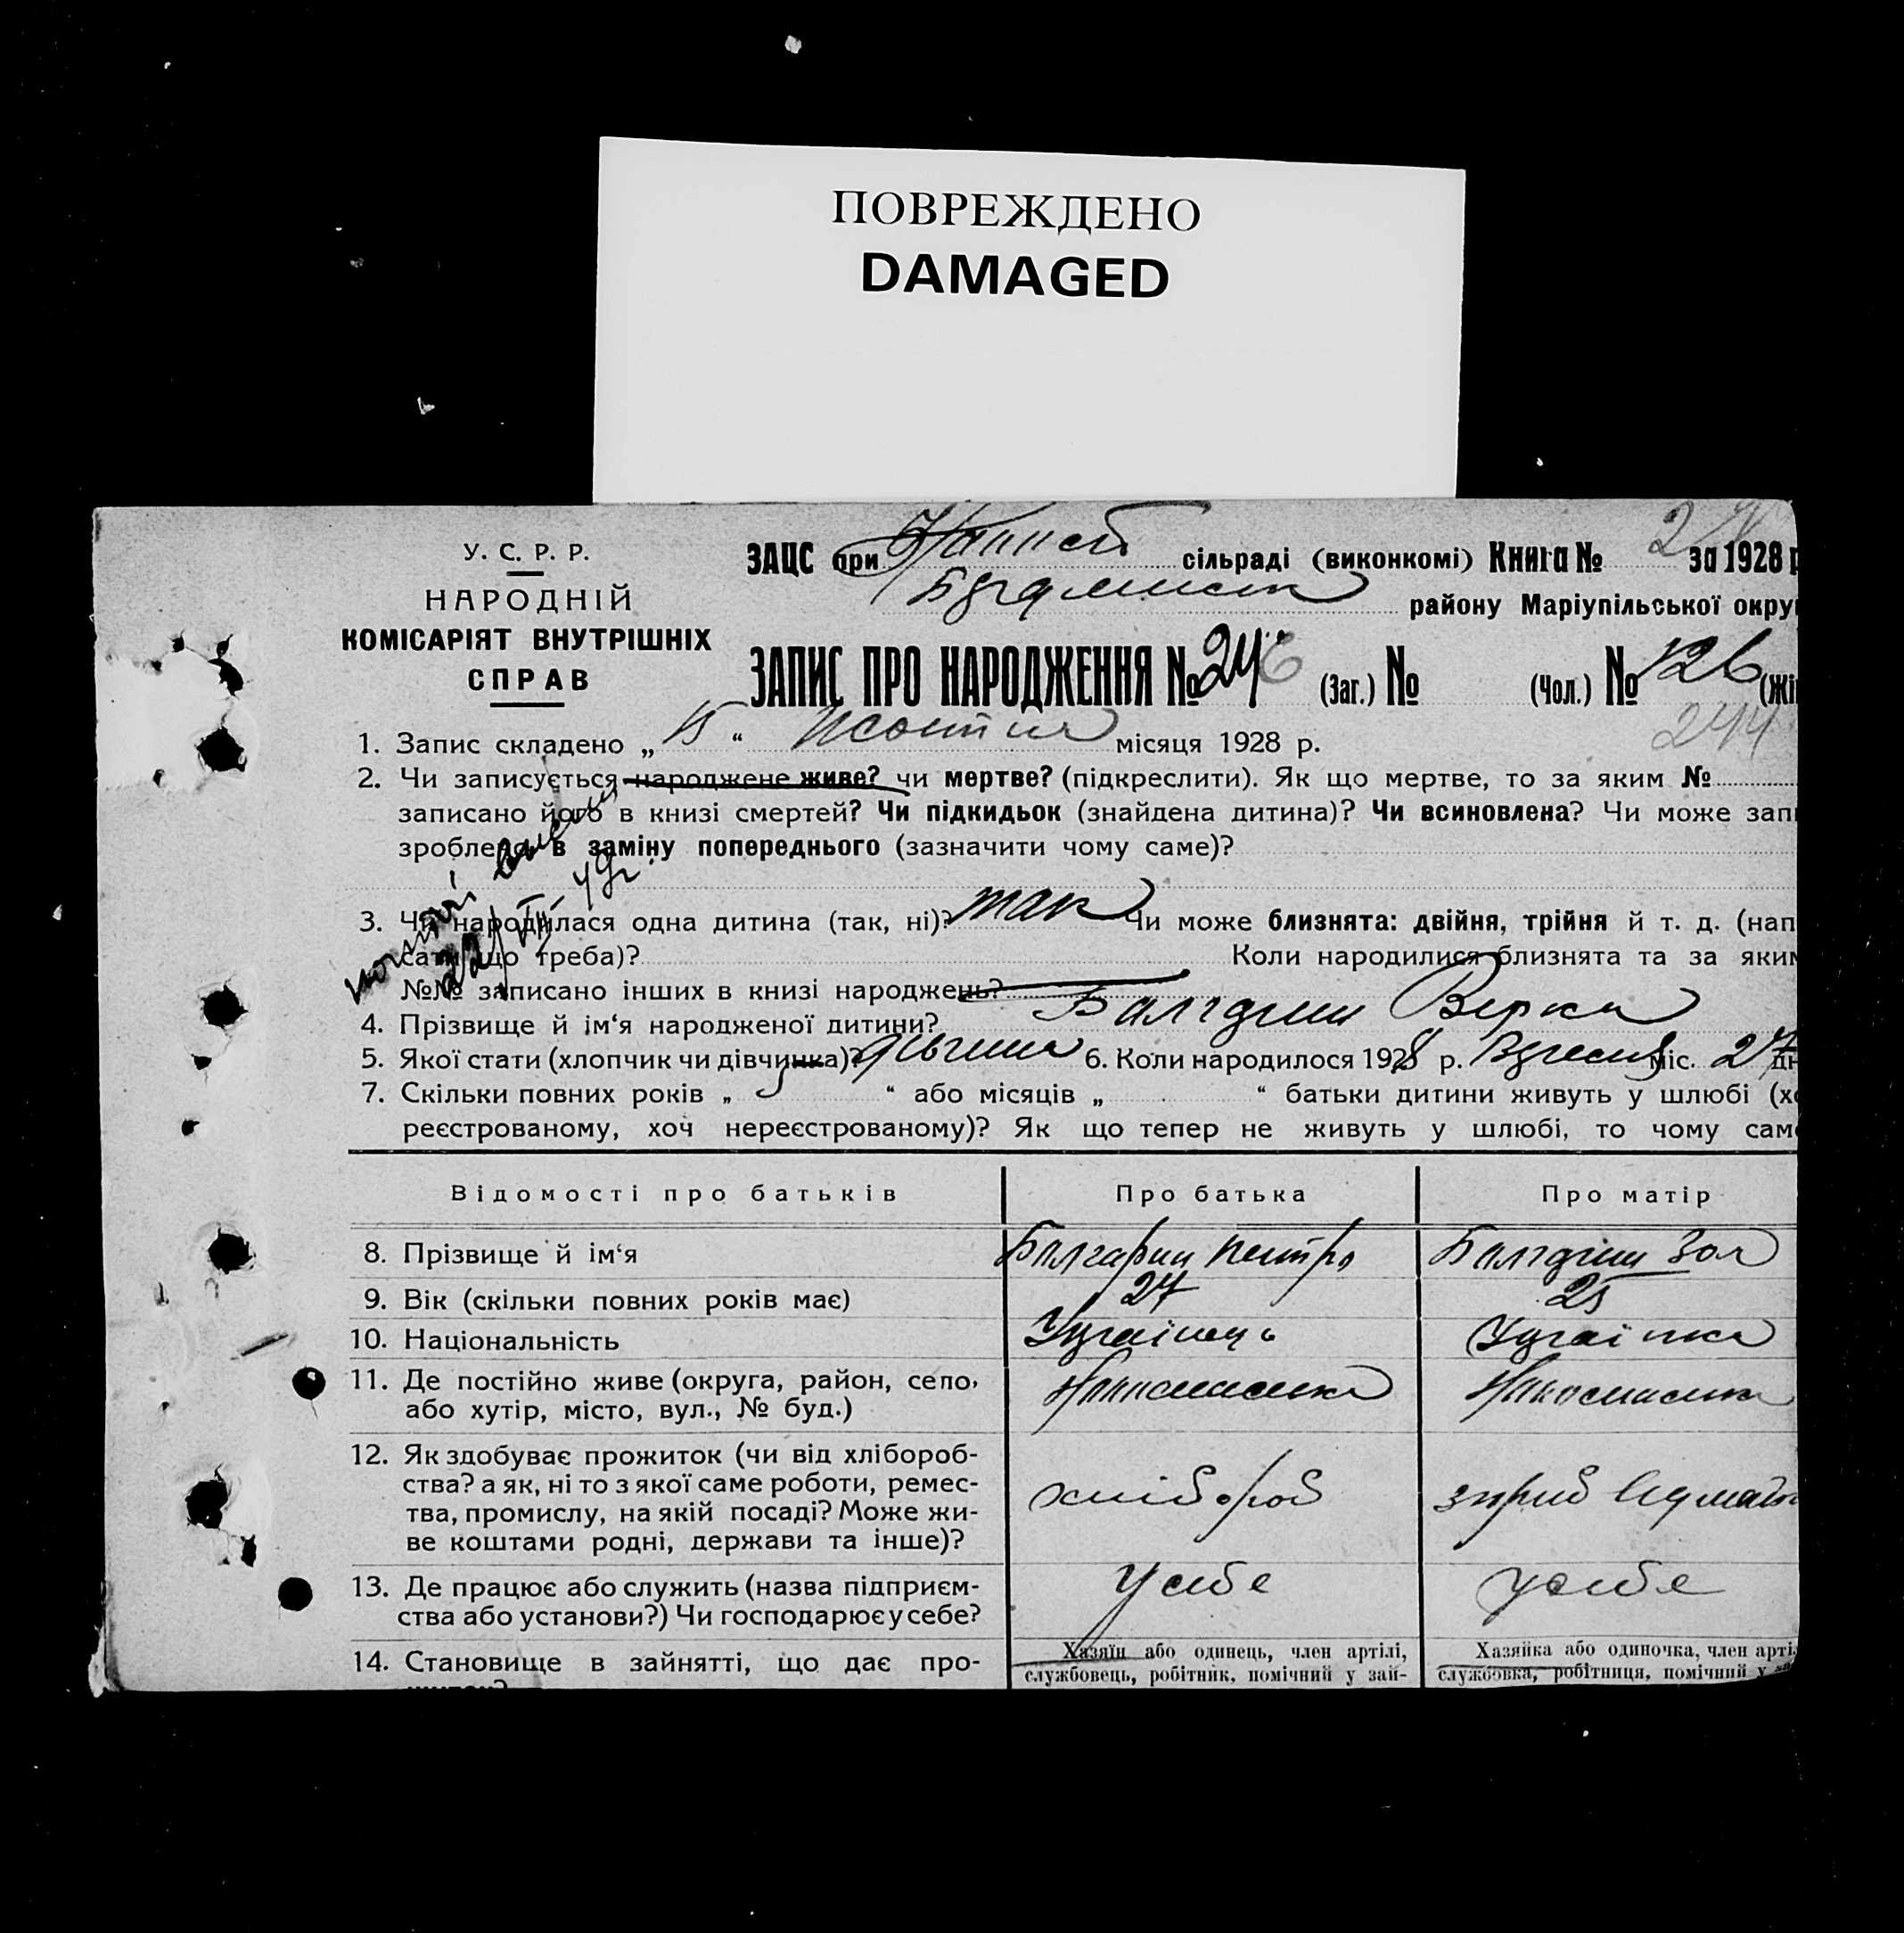 ПОВРЕЖДЕНО
DAMAGED
У. С. Р. Р.
НАРОДНІЙ
КОМІСАРІЯТ ВНУТРІШНІХ
СПРАВ
ЗАЦС при сільраді (виконкомі) Книга № за 1928 р
району Маріупільської окру
ЗАПИС ПРО НАРОДЖЕННЯ № 246 (Заг.) № (Чол.) № 126 (Жі
244
1. Запис складено „ 15 “ Жовтня місяця 1928 р.
2. Чи записується народжене живе? чи мертве? (підкреслити). Як що мертве, то за яким №
записано його в книзі смертей? Чи підкидьок (знайдена дитина)? Чи всиновлена? Чи може зап
зроблено в заміну попереднього (зазначити чому саме)?
3. Чи народилася одна дитина (так, ні)? так Чи може близнята: двійня, трійня й т. д. (нап
сати що треба)? Коли народилися близнята та за яким
№№ записано інших в книзі народжень?
4. Прізвище й ім‘я народженої дитини? Вірка
5. Якої стати (хлопчик чи дівчинка)? 6. Коли народилося 1928 р. Вересня міс. 27 дн
7. Скільки повних років „ 5 “ або місяців „ “ батьки дитини живуть у шлюбі (хо
реєстрованому, хоч нереєстрованому)? Як що тепер не живуть у шлюбі, то чому сам
Відомості про батьків Про батька Про матір
8. Прізвище й ім‘я Балгарин Петро
9. Вік (скільки повних років має) 27 25
10. Національність Українець Українка
11. Де постійно живе (округа, район, село,
або хутір, місто, вул., № буд.)
12. Як здобуває прожиток (чи від хлібороб-
ства? а як, ні то з якої саме роботи, ремес-
тва, промислу, на якій посаді? Може жи-
ве коштами родні, держави та інше)?
хлібороб
13. Де працює або служить (назва підприєм-
ства або установи?) Чи господарює у себе?
У себе У себе
14. Становище в зайнятті, що дає про-
Хазяїн або одинець, член артілі,
службовець, робітник, помічний у зай-
Хазяйка або одиночка, член арті
службовка, робітниця, помічний у